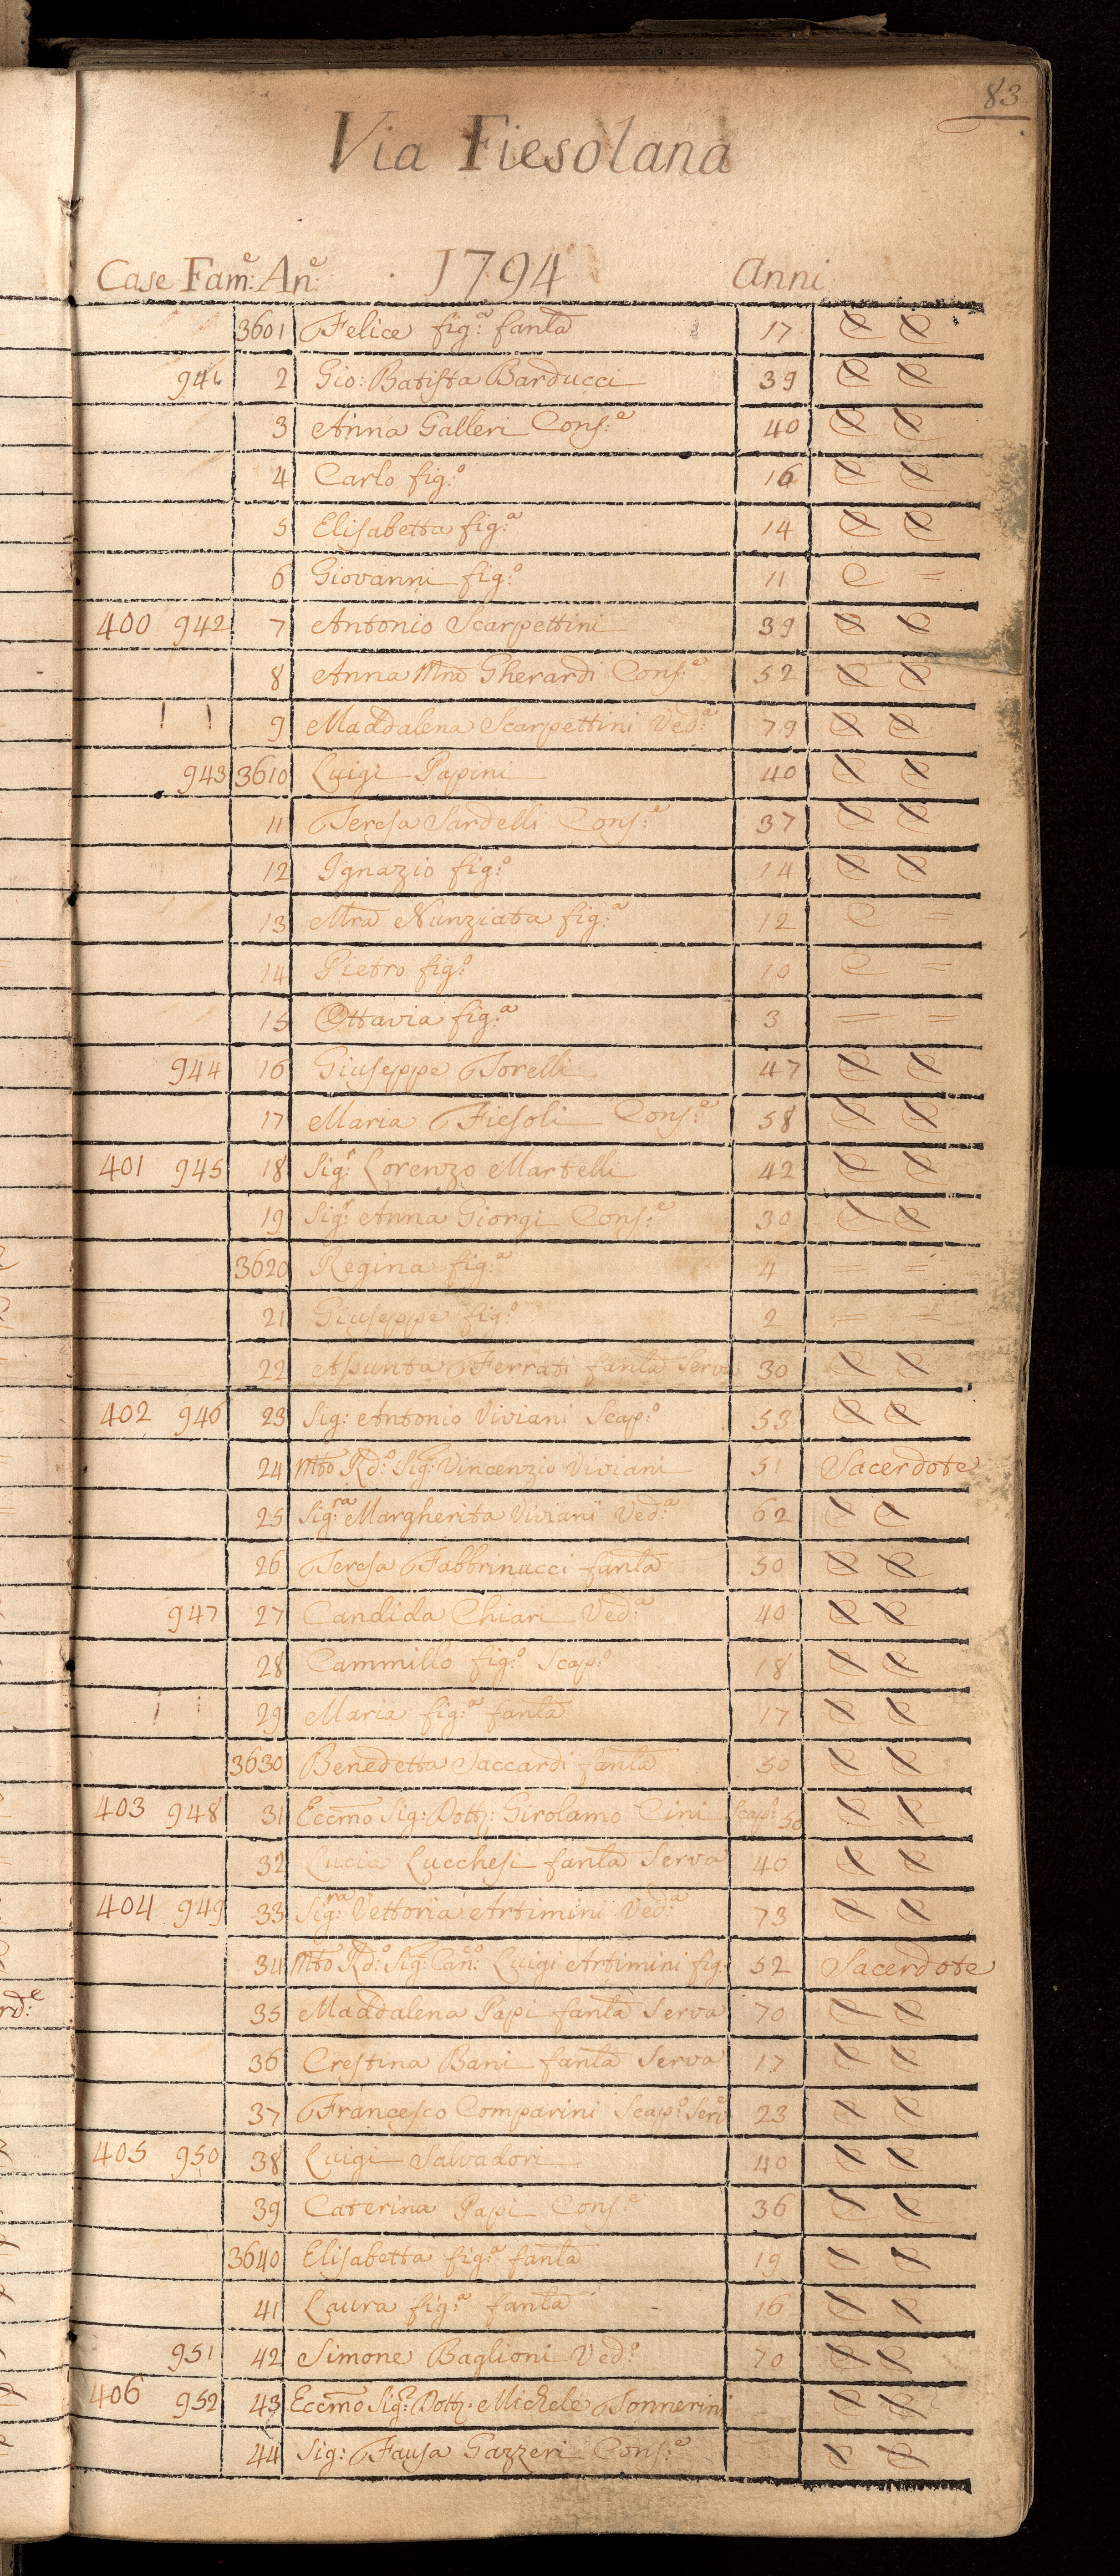 83
Via Fiesolana
Case Fam:e An:e 1794 Anni
3601 Felice fig:a fanla 17
941 2 Gio: Batista Barducci 39
3 Anna Galleri Cons:e 40
4 Carlo fig:o 16
5 Elisabetta fig:a 14
6 Giovanni fig:o 11 C =
400 942 7 Antonio Scarpettini 39
8 Anna Mra Gherardi Cons:e 52
9 Maddalena Scarpettini Ved:a 79
943 3610 Luigi Papini 40
11 Teresa Sardelli Cons:e 37
12 Ignazio fig:o 14
13 Mra Nunziata fig:a 12 C =
14 Pietro fig:o 10 C =
15 Ottavia fig:a 3 = =
944 16 Giuseppe Torelli 47
17 Maria Fiesoli Cons:e 58
401 945 18 Sig:r Lorenzo Martelli 42
19 Sig:a Anna Giorgi Cons:e 30
3620 Regina fig:a 4 = =
21 Giuseppe fig:o 2 = =
22 Assunta Ferrati fanla Serva 30
402 946 23 Sig: Antonio Viviani Scap:o 53
24 Mto Rd:o Sig: Vincenzio Viviani 51 Sacerdote
25 Sig:ra Margherita Viviani Ved:a 62
26 Teresa Fabbrinucci fanla 50
947 27 Candida Chiari Ved:a 40
28 Cammillo fig:o Scap:o 18
29 Maria fig:a fanla 17
3630 Benedetta Saccardi fanla 50
403 948 31 Eccmo Sig: Dott: Girolamo Cini Scap:o 50
32 Lucia Lucchesi fanla Serva 40
404 949 33 Sig:ra Vettoria Artimini Ved:a 73
34 Mto Rd:o Sig: Can:co Luigi Artimini fig: 52 Sacerdote
35 Maddalena Papi fanla Serva 70
36 Crestina Bani fanla Serva 17
37 Francesco Comparini Scap:o Serv 23
405 950 38 Luigi Salvadori 40
39 Caterina Papi Cons:e 36
3640 Elisabetta fig:a fanla 19
41 Laura fig:a fanla 16
951 42 Simone Baglioni Ved:o 70
406 952 43 Eccmo Sig:e Dott: Michele Sonnerini
44 Sig: Fausa Gazzeri Cons:e